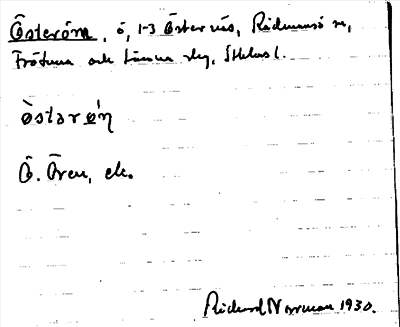 Österöm, ö, 1-3 Östernäs, Rådmansö sn,
Frötuna och Länna slg, Sthlms l.
òstərø̀n
Ö. Ören, etc.
Rickard Norrman 1930.